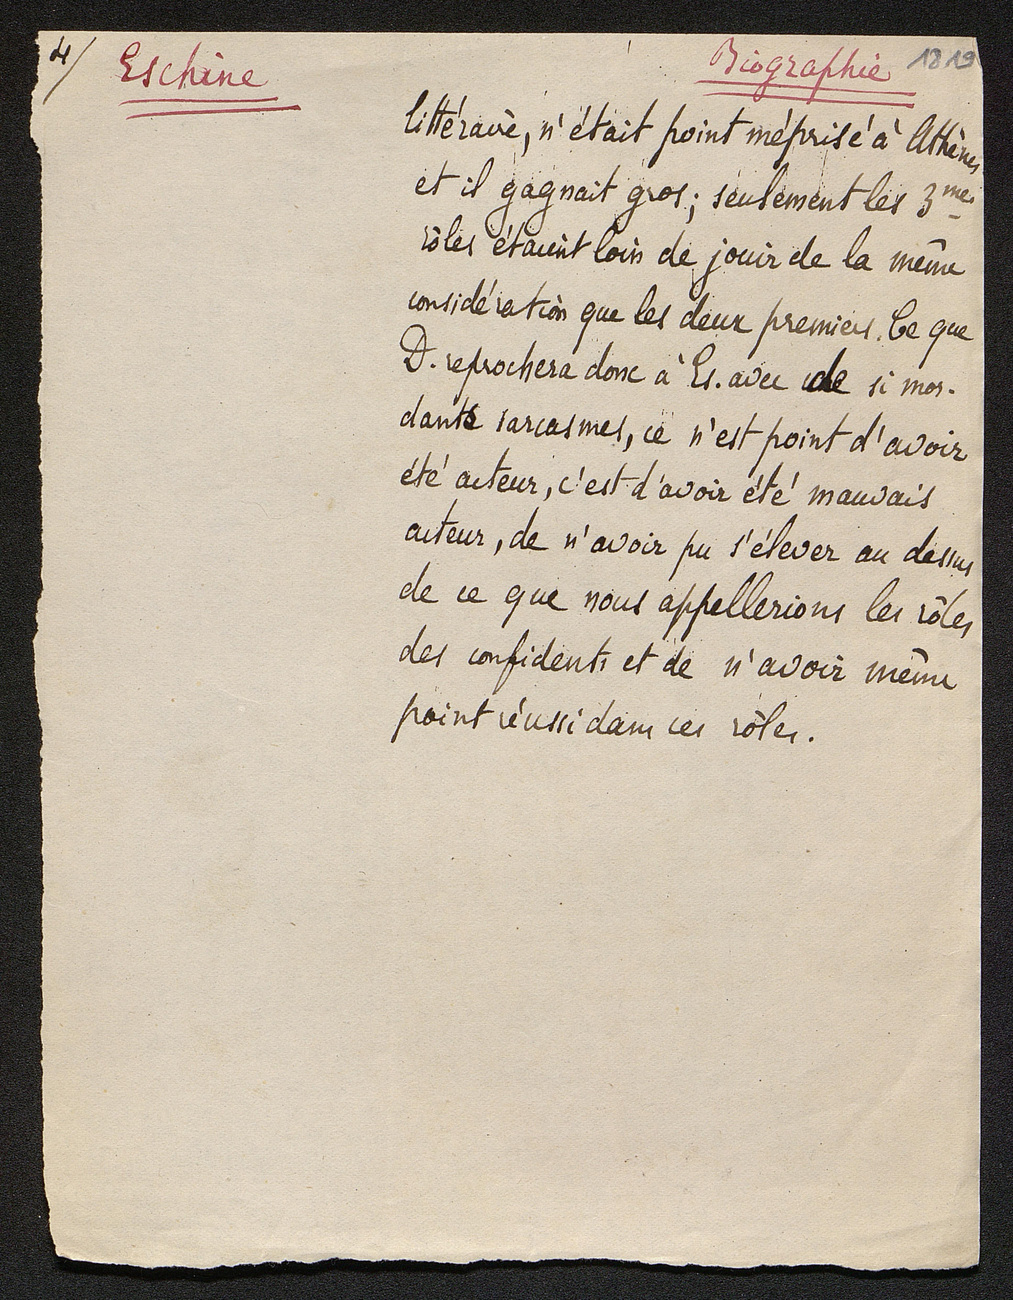 4/ Eschine Biographie 1819
littéraire, n'était point méprisé à Athènes
et il gagnait gros; seulement les 3mes
rôles étaient loin de jouir de la même
considération que les deux premiers. Ce que
D. reprochera donc à Es. avec de si mor-
dants sarcasmes, ce n'est point d'avoir
été acteur, c'est d'avoir été mauvais
acteur, de n'avoir pu s'élever au dessus
de ce que nous appellerions les rôles
des confidents et de n'avoir même
point réussi dans ces rôles.